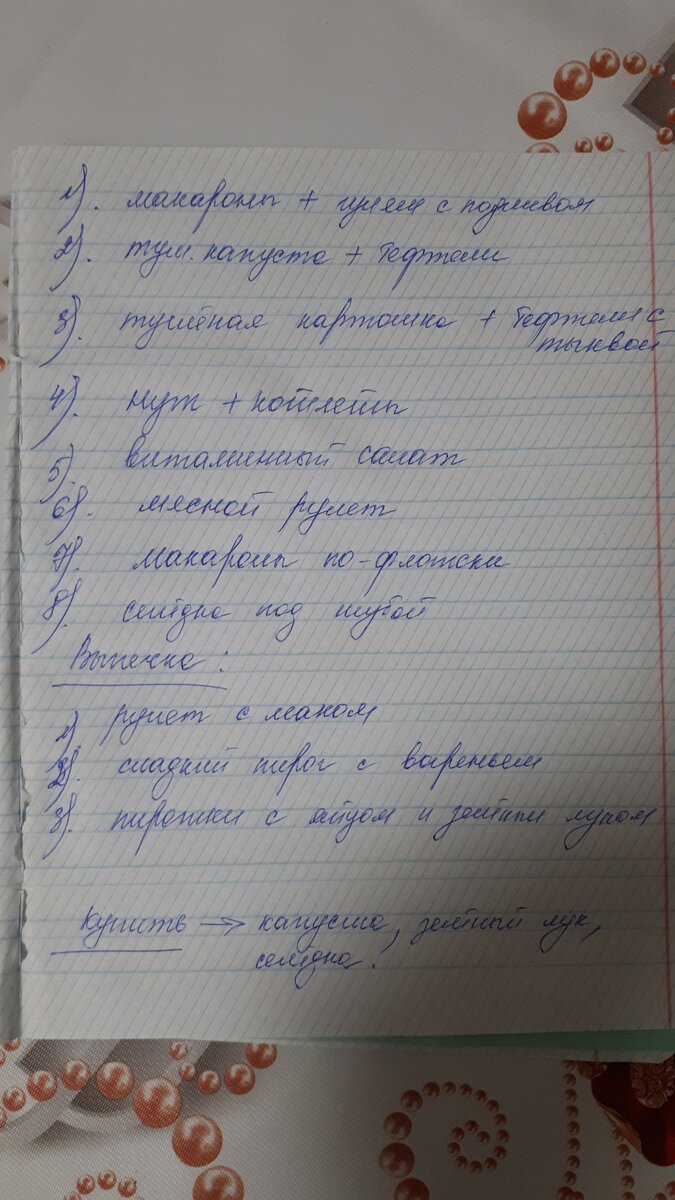 1). макароны + гуляш с подливом
2). туш. капуста + тефтели
3). тушёная картошка + тефтели с
тыквой
4). нут + котлеты
5). витаминный салат
6). мясной рулет
7). макароны по-флотски
8). селёдка под шубой
Выпечка:
1) рулет с маком
2). сладкий пирог с вареньем
3). пирожки с яйцом и зелёным луком
Купить → капуста, зелёный лук,
селёдка.